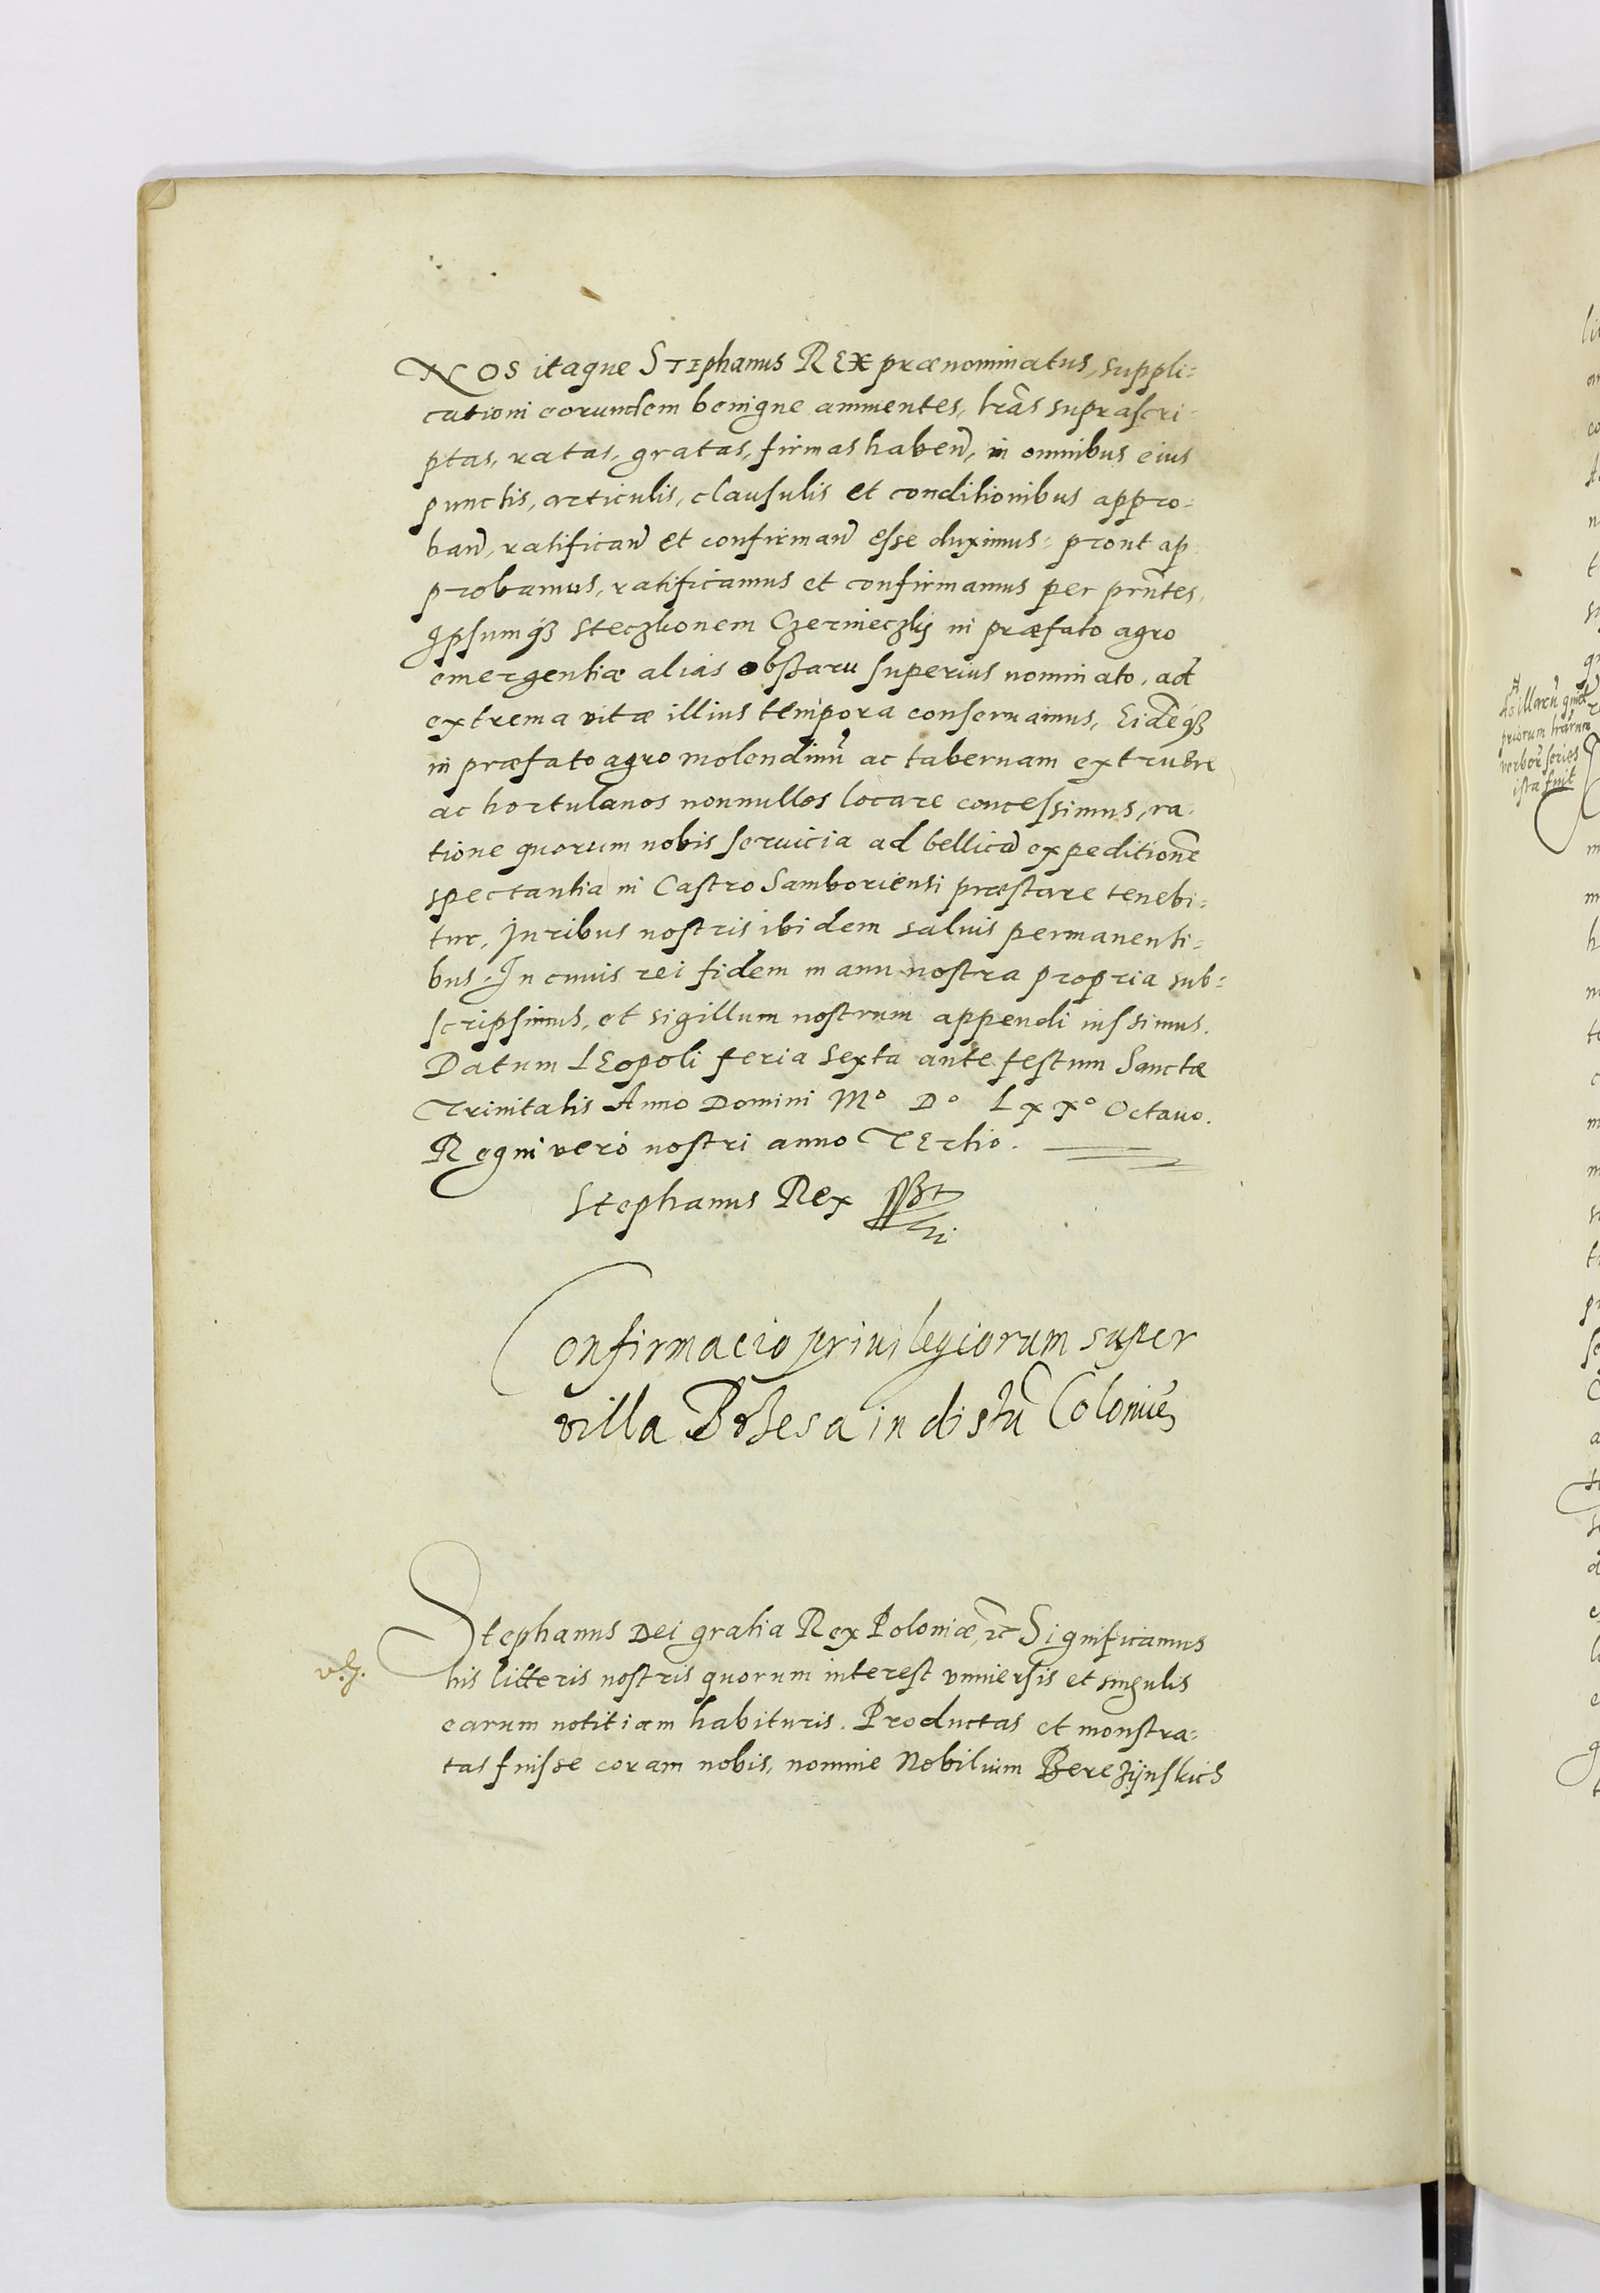 NOS itaque STEphanus REX prænominatus, suppli=
cationi eorundem benigne annuentes, lrãs suprascri=
ptas, ratas, gratas, firmas haben̄, in omnibus eius
punctis, articulis, clausulis et conditionibus appro=
ban̄, ratifican̄ et confirman̄ esse duximus: prout ap=
probamus, ratificamus et confirmamus per prñtes,
Ipsumq̃ Steczkonem Czernieczky in præfato agro
emergentiæ alias obszaru superius nominato, ad
extrema vitæ illius tempora conseruamus, Eidẽq̃
in præfato agro molendinũ ac tabernam extruere
ac hortulanos nonnullos locare concessimus, ra=
tione quorum nobis seruicia ad bellicã expeditionẽ
spectantia in Castro Samboriensi præstare tenebi=
tur, Juribus nostris ibidem saluis permanenti=
bus. In cuius rei fidem manu nostra propria sub=
scripsimus, et sigillum nostrum appendi iussimus.
Datum LEopoli feria sexta ante festum Sanctæ
Trinitatis Anno Domini Mº Dº Lxxº Octauo.
Regni vero nostri anno TErtio.
Stephanus Rex
Confirmacio priuilegiorum super
villa in Colomiẽ
Stephanus Dei gratia Rex Poloniæ, etc Significamus
his litteris nostris quorum interest vniuersis et singulis
earum notitiam habituris. Productas et monstra=
tas fuisse coram nobis, nomine Nobilium Berezijnskich
priorum lrãrum
series
ista fuit